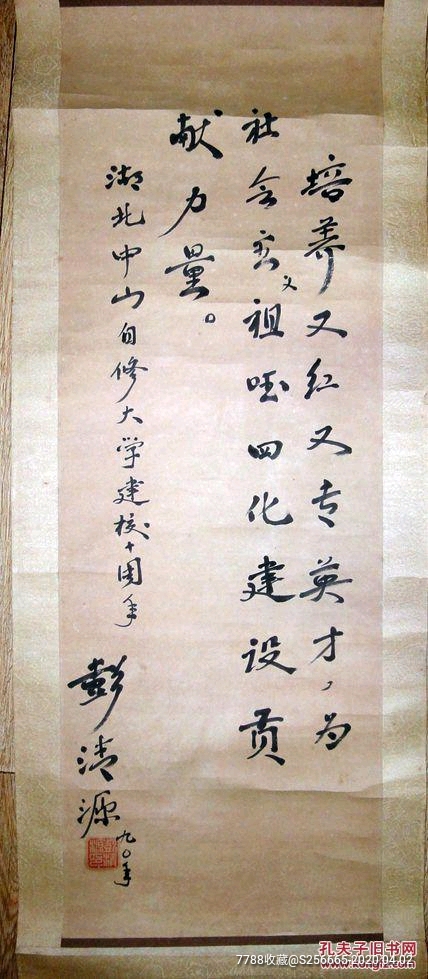 培养又红又专英才，为
社会主义祖国四化建设贡
献力量。
湖北中山自修大学建校十周年
彭清源 九〇年
孔夫子旧书网
7788收藏@S256665:2020.04.02